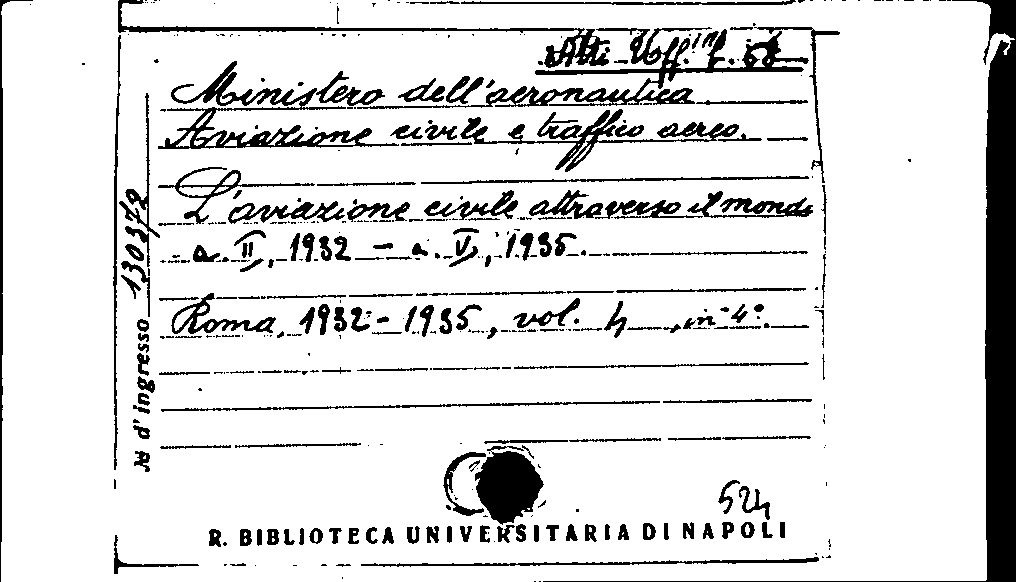 Atti Uff.
Ministero dell'aeronautica.
Aviazione civile e traffico aereo.
L'aviazione civile attraverso il mondo
a. II, 1932 - a. V, 1935.
Roma, 1932-1935, vol. 4, in-4°.
№ d'ingresso 130372
524
R. BIBLIOTECA UNIVERSITARIA DI NAPOLI